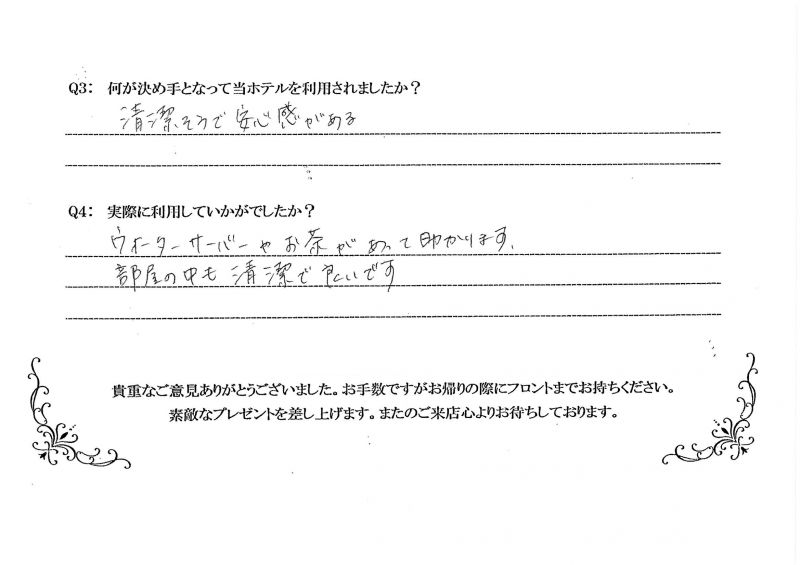 Q3： 何が決め手となって当ホテルを利用されましたか？
清潔そうで安心感がある
Q4： 実際に利用していかがでしたか？
ウォーターサーバーやお茶があって助かります。
部屋の中も清潔で良いです
貴重なご意見ありがとうございました。お手数ですがお帰りの際にフロントまでお持ちください。
素敵なプレゼントを差し上げます。またのご来店心よりお待ちしております。